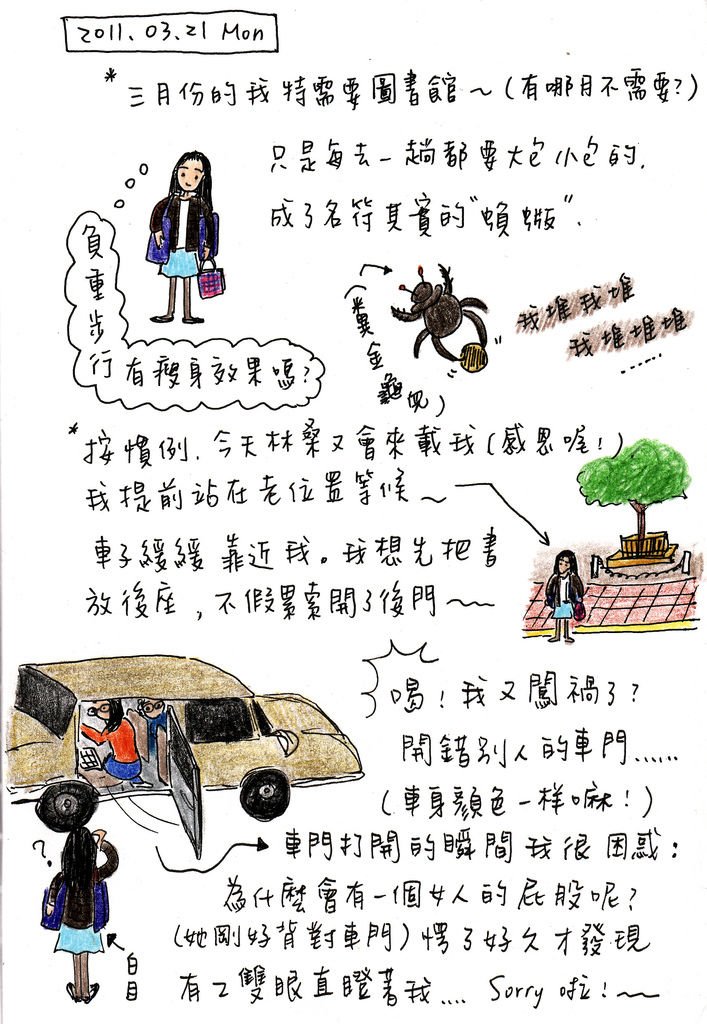 2011.03.21 Mon
*三月份的我特需要圖書館～(有哪月不需要?)
只是每去一趟都要大包小包的.
成了名符其實的"蝜蝂".
負重步行有瘦身效果嗎?
(糞金龜況)
我堆我堆
我堆堆堆
......
*按慣例.今天林桑又會來載我(感恩喔!)
我提前站在老位置等候～
車子緩緩靠近我。我想先把書
放後座,不假思索開了後門～～
喝!我又闖禍了?
開錯別人的車門......
(車身顏色一樣嘛!)
車門打開的瞬間我很困惑:
為什麼會有一個女人的屁股呢?
(她剛好背對車門)愣了好久才發現
有2雙眼直瞪著我.... Sorry啦!～～
?
白目